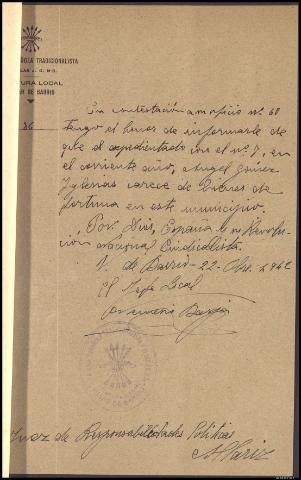 TRADICIONALISTA
LOCAL
DE BARRIO
36
En contestación a su oficio nº 60
tengo el honor de informarle de
que el expedientado con el nº 7, en
el corriente año, Angel Gómez
Yglesias carece de bienes de
fortuna en este municipio.
Por Dios, España y su Revolu-
ción Nacional Sindicalista.
V. de Barrio - 22 -
El Jefe Local
Juez de Responsabilidades Politicas
Allariz